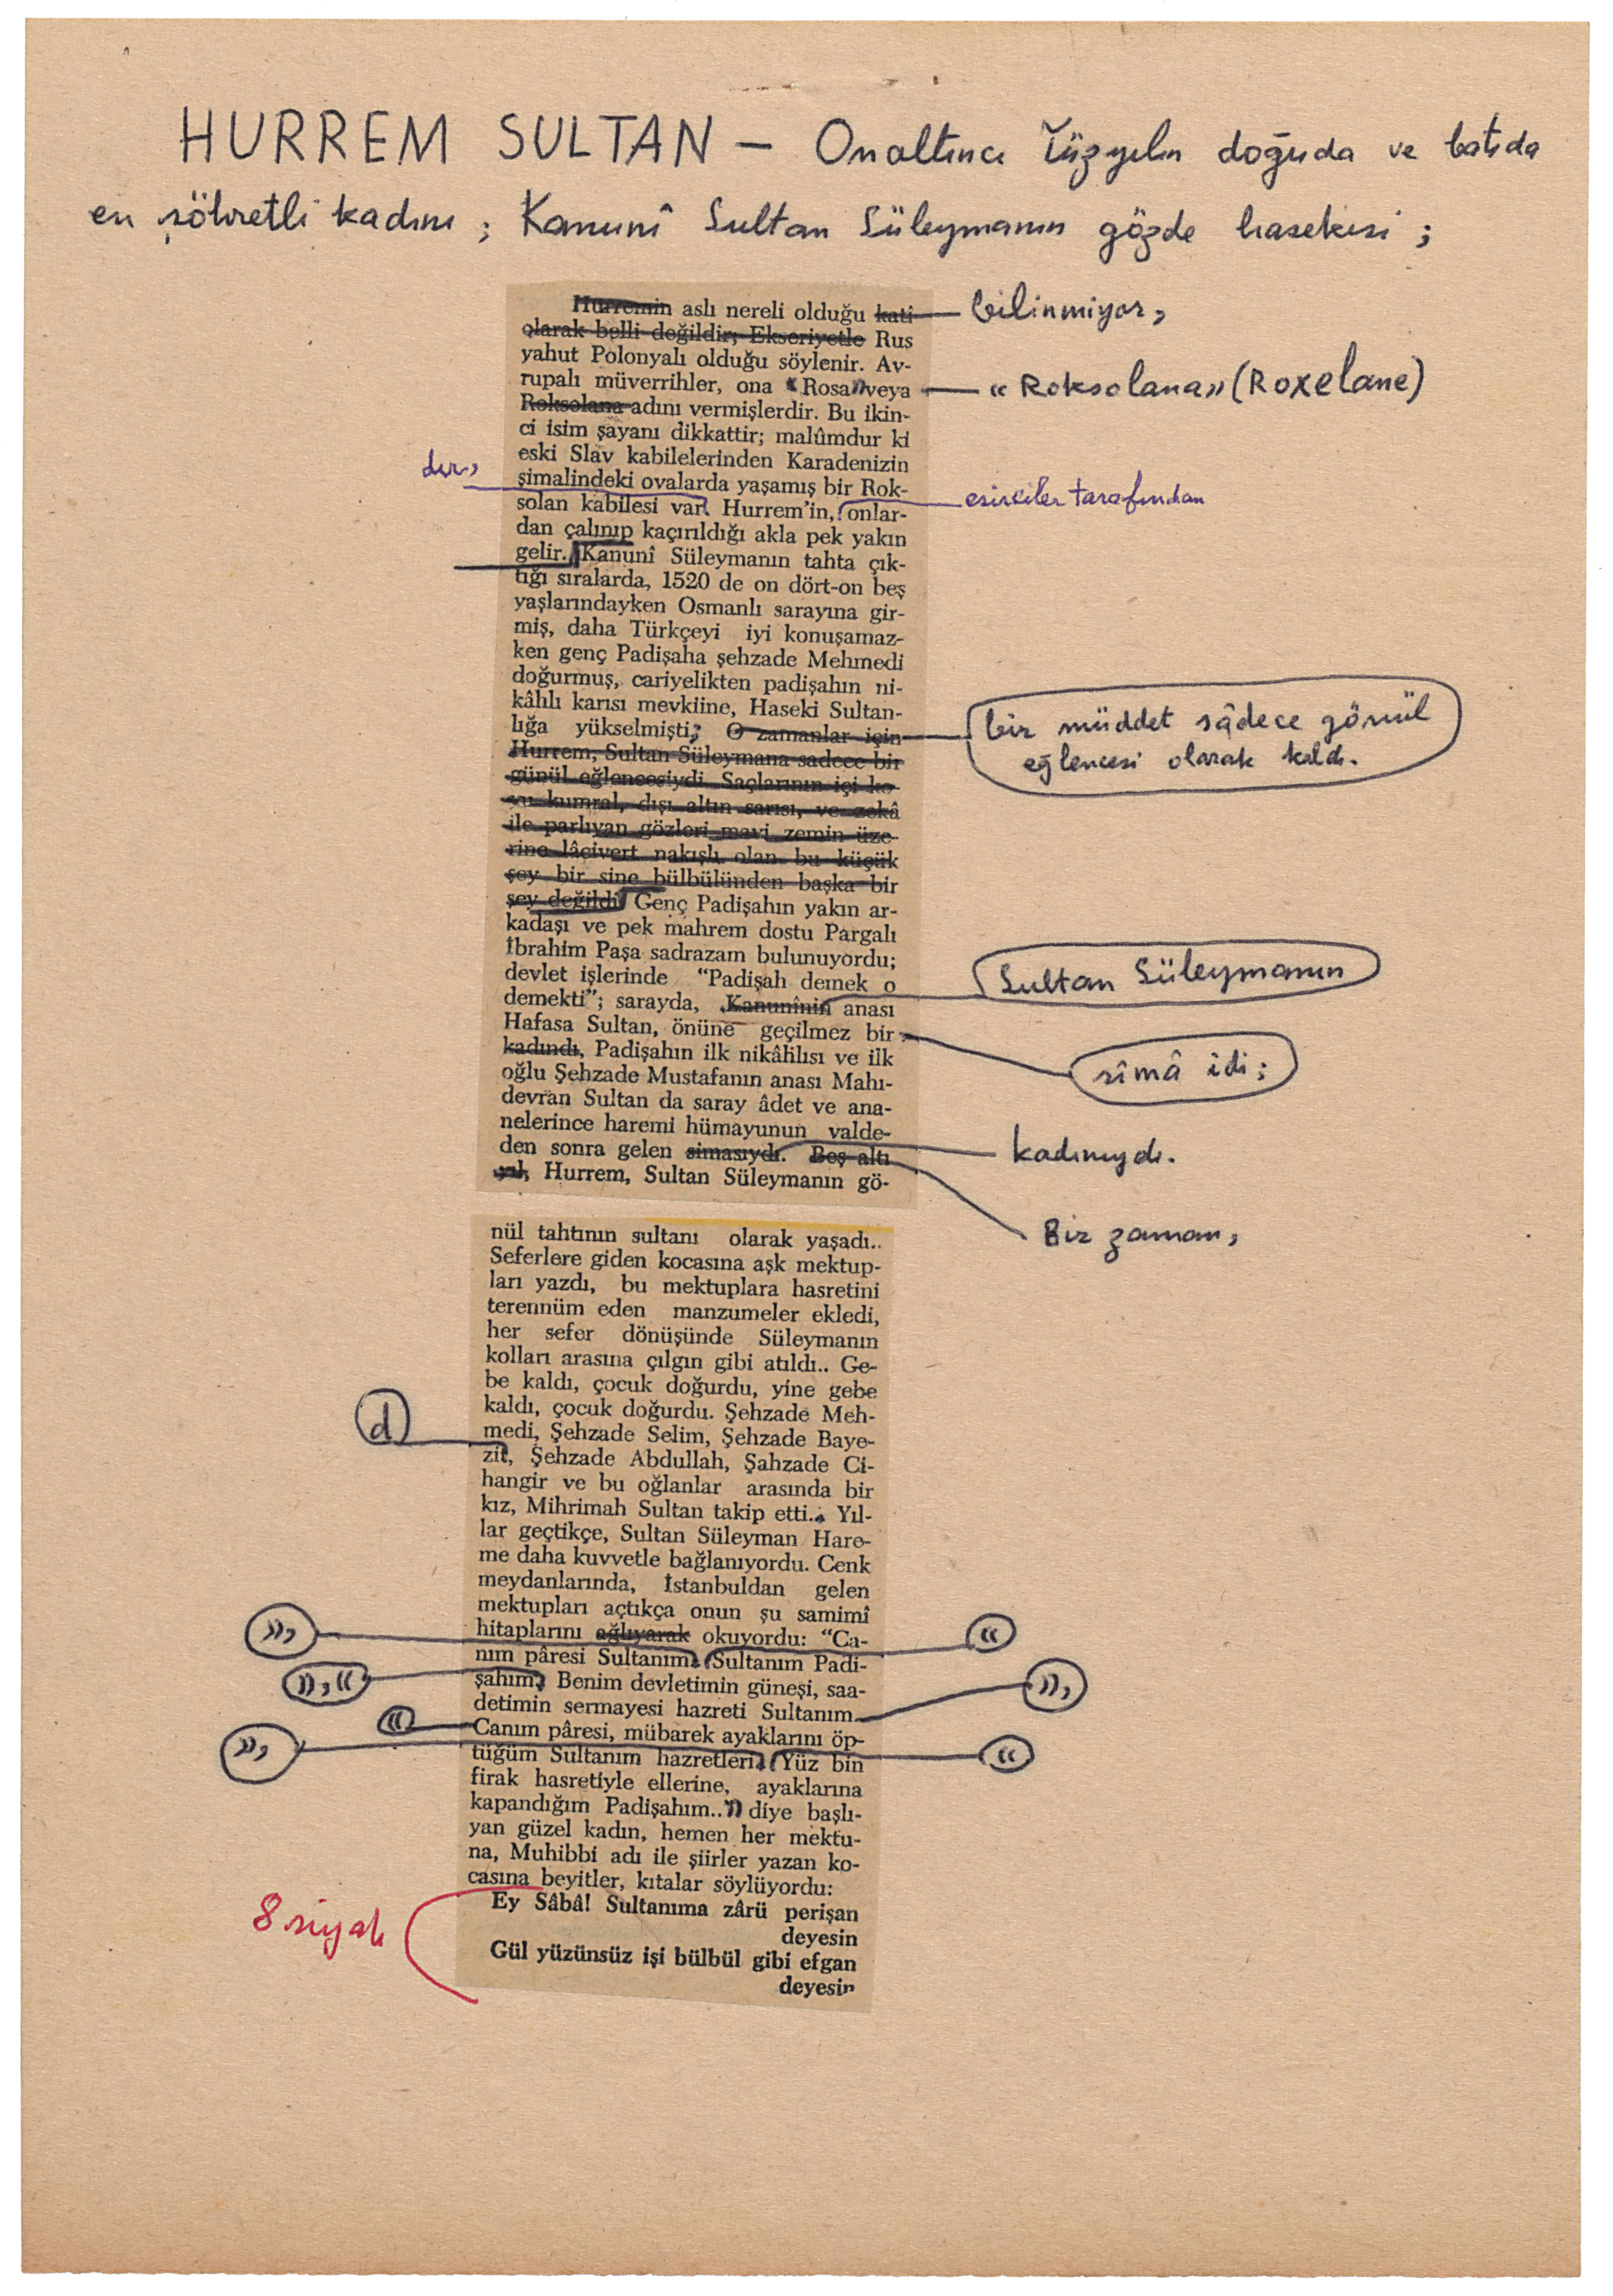 HURREM SULTAN — Onaltıncı Yüzyılın doğuda ve batıda
en şöhretli kadını ; Kanunî Sultan Süleymanın gözde hasekisi ;
Hurremin aslı nereli olduğu kati bilinmiyor,
olarak belli değildir; Ekseriyetle Rus
yahut Polonyalı olduğu söylenir. Av-
rupalı müverrihler, ona «Rosa» veya « Roksolana» (Roxelane)
Roksolana adını vermişlerdir. Bu ikin-
ci isim şayanı dikkattir; malûmdur ki
eski Slav kabilelerinden Karadenizin
dır, şimalindeki ovalarda yaşamış bir Rok- esirciler tarafından
solan kabilesi var. Hurrem'in, onlar-
dan çalınıp kaçırıldığı akla pek yakın
gelir. Kanunî Süleymanın tahta çık-
tığı sıralarda, 1520 de on dört-on beş
yaşlarındayken Osmanlı sarayına gir-
miş, daha Türkçeyi iyi konuşamaz-
ken genç Padişaha şehzade Mehmedi
doğurmuş, cariyelikten padişahın ni-
kâhlı karısı mevkiine, Haseki Sultan-
lığa yükselmişti; O zamanlar için bir müddet sâdece gönül
eğlencesi olarak kaldı.
Hurrem, Sultan Süleymana sadece bir
günül eğlencesiydi. Saçlarının içi ko-
yu kumral, dışı altın sarısı, ve zekâ
ile parlıyan gözleri mavi zemin üze-
rine lâcivert nakışlı olan bu küçük
şey bir sine bülbülünden başka bir
şey değildi. Genç Padişahın yakın ar-
kadaşı ve pek mahrem dostu Pargalı
İbrahim Paşa sadrazam bulunuyordu;
devlet işlerinde “Padişah demek o
demekti”; sarayda, Kanunînin anası Sultan Süleymanın
Hafasa Sultan, önüne geçilmez bir sîmâ idi;
kadındı, Padişahın ilk nikâhlısı ve ilk
oğlu Şehzade Mustafanın anası Mahı-
devran Sultan da saray âdet ve ana-
nelerince haremi hümayunun valde-
den sonra gelen simasıydı. Beş altı kadınıydı.
yıl, Hurrem, Sultan Süleymanın gö- Bir zaman,
nül tahtının sultanı olarak yaşadı..
Seferlere giden kocasına aşk mektup-
ları yazdı, bu mektuplara hasretini
terennüm eden manzumeler ekledi,
her sefer dönüşünde Süleymanın
kolları arasına çılgın gibi atıldı.. Ge-
be kaldı, çocuk doğurdu, yine gebe
kaldı, çocuk doğurdu. Şehzade Meh-
d medi, Şehzade Selim, Şehzade Baye-
zit, Şehzade Abdullah, Şahzade Ci-
hangir ve bu oğlanlar arasında bir
kız, Mihrimah Sultan takip etti.. Yıl-
lar geçtikçe, Sultan Süleyman Hare-
me daha kuvvetle bağlanıyordu. Cenk
meydanlarında, İstanbuldan gelen
mektupları açtıkça onun şu samimî
», hitaplarını ağlıyarak okuyordu: “Ca- «
nım pâresi Sultanım. Sultanım Padi-
»,« şahım. Benim devletimin güneşi, saa- »,
detimin sermayesi hazreti Sultanım.
« Canım pâresi, mübarek ayaklarını öp-
», tüğüm Sultanım hazretleri. Yüz bin «
firak hasretiyle ellerine, ayaklarına
kapandığım Padişahım..» diye başlı-
yan güzel kadın, hemen her mektu-
na, Muhibbi adı ile şiirler yazan ko-
casına beyitler, kıtalar söylüyordu:
8 siyah Ey Sâbâ! Sultanıma zârü perişan
deyesin
Gül yüzünsüz işi bülbül gibi efgan
deyesin